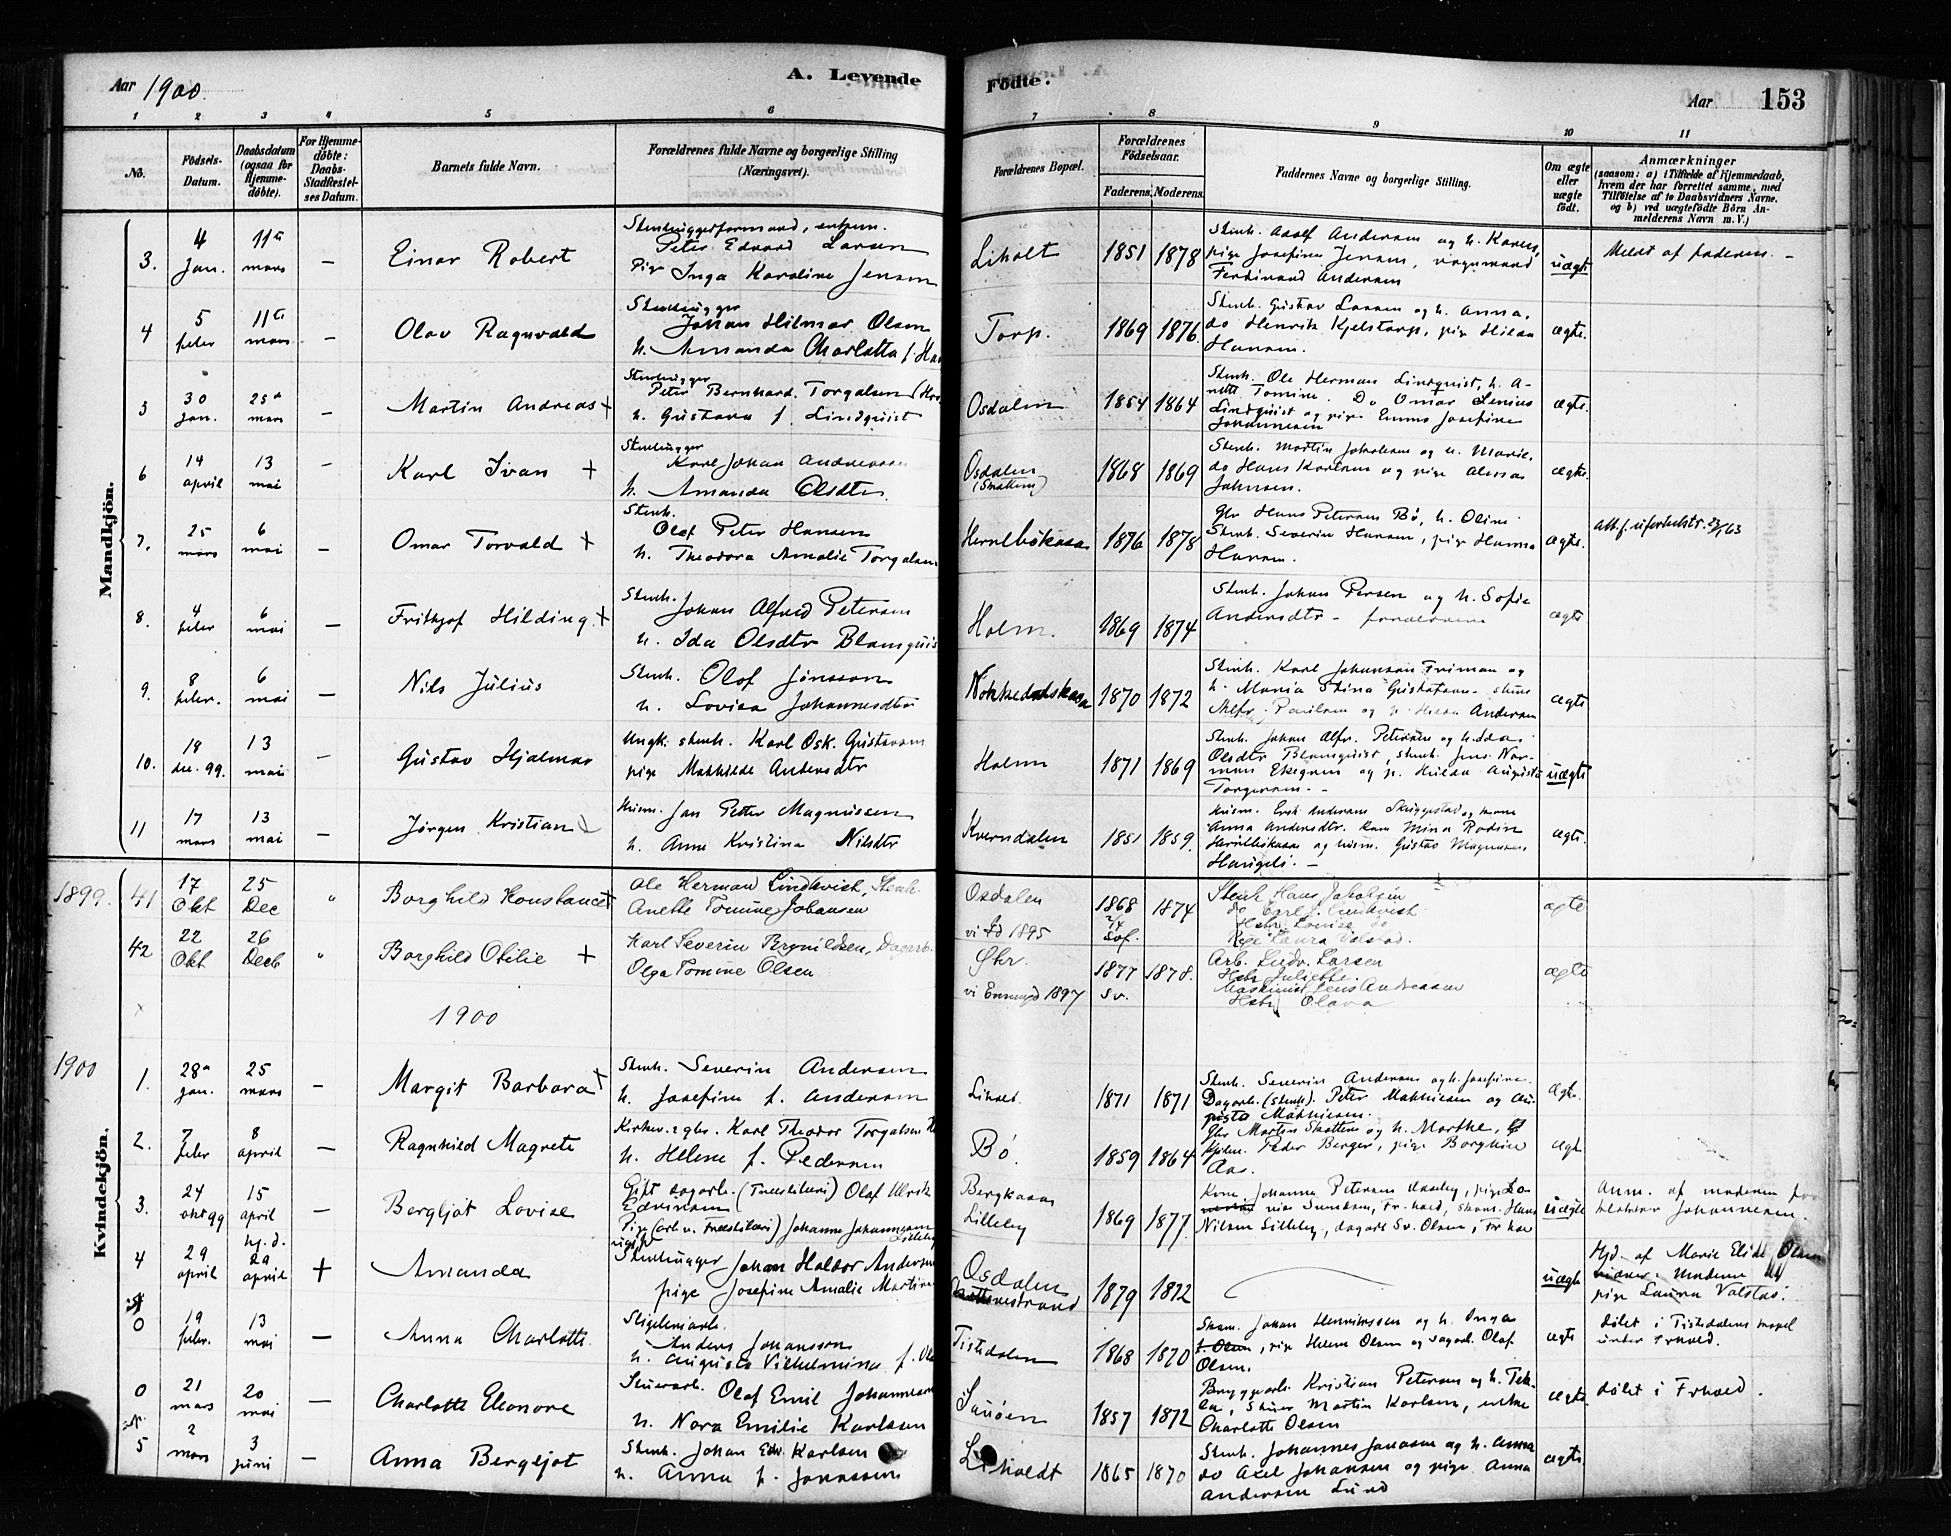 Aar 1900.
A. Levende
Födte.
Aar
153
1 2 3 4 5 6 7 8 9 10 11
No.
Födsels-
Datum.
Daabsdatum
(ogsaa for
Hjemme-
döbte).
For Hjemme-
döbte:
Daabs-
Stadfæstel-
ses Datum.
Barnets fulde Navn.
Forældrenes fulde Navne og borgerlige Stilling
(Næringsvei).
Forældrenes Bopæl.
Forældrenes
Födselsaar.
Faderens. Moderens.
Faddernes Navne og borgerlige Stilling.
Om ægte
eller
uægte
födt.
Anmærkninger
(saasom: a) i Tilfælde af Hjemmedaab,
hvem der har forrettet samme, med
Tilföielse af to Daabsvidners Navne.
og b) ved uægtefödte Börn An-
melderens Navn m. V.)
Mandkjön.
3. 4 Jan. 11te mars — Einar Robert
Peter Edvard Larsen
Pige Inga Karoline Jensen
Liholt 1851 1878
Stenh. Adolf Andersen og h. Karen,
pige Josefine Jensen,
Ferdinand Andersen
uægte Meldt af faderen. —
4 5 febr 11te mars — Olav Ragnvald
Stenhugger
Johan Hilmar Olsen
h. Amanda Charlotta f. Han
Torp. 1869 1876.
Stenh. Gustav Larsen og h. Anna,
do Henrik Kjelstorp, pige Hilda
Hansen.
ægte.
5 30 jan. 25de mars — Martin Andreas +
Stenhugger
Peter Bernhard Torgalsen
h. Gustava f. Lindquist
Osdalen 1854 1864
Stenh. Ole Herman Lindquist, h. A-
nette Tomine. Do Omar Lenius
Lindquist og pige Emma Josefine
Johannesen
ægte.
6 14 april 13 mai — Karl Ivan +
Stenhugger
Karl Johan Andreassen
h. Amanda Olsdtr
Osdalen 1868 1869
Stenh. Martin Jakobsen og h. Marie.
do Hans Karlsen og pige
Johnsen.
ægte.
7. 25 mars 6 mai — Omar Torvald +
Stenh.
Olof Peter Hansen
h. Theodora Amalie Torgalsen
Hernebökasa 1876 1878
Gbr Hans Petersen Bö, h. Oline
Stenh. Severin Hansen, pige Hanna
Hansen.
ægte.
8. 4 febr 6 mai — Frithjof Hilding. +
Stenh. Johan Alfred Petersen
h. Ida Olsdtr Blomquis
Holm. 1869 1874
Stenh. Johan Persen og h. Sofie
Andersdtr — forældrene
ægte
9. 8 febr. 6 mai — Nils Julius
Stenh. Olof Jönsson
h. Lovisa Johannesdtr
Nokkedalskasa 1870 1872
Stenh. Karl Johansson Friman og
h. Maria Stina Gustafsson
Alfr. Paulsen og p. Hilda Andersen
ægte
10. 18 dec. 99. 13 mai — Gustav Hjalmar
Ungk. stenh. Karl Osk. Gustavsen
pige Mathilde Andersdtr
Holm 1871 1869
Stenh. Johan Alfr. Petersen og h. Ida
Olsdtr Blomquist, stenh. Jens Nor-
man Ekegren og p. Hulda Augusta
Torgersen. —
uægte
11 17 mars 13 mai — Jørgen Kristian
Husm. Jan Petter Magnussen
h. Anne Kristina Nilsdtr
Kverndalen 1851 1859.
Anna Andersdtr. Mina Rodin
Hernebökasa og husm. Gustav Magnussen
Haugeli. —
ægte.
1899. 41 17 Okt 25 Dec " Borghild Konstance +
Ole Herman Lindkvist, Stenh
Anette Tomine Johansen
Osdalen
vi Id 1895
1868 1874
Stenh Hans Jakobsen
do Carl J. Lindkvist
Hstr Louise do
Pige Laura Valstad.
ægte
42 22 Okt 26 Decb " Borghild Otilie +
Karl Severin Brynildsen, Dagarb.
Olga Tomine Olsen
vi Enningd 1897
1877 1878.
Sv.
Arb. Ludv. Larsen
Hstr Juliette
Maskinist Jens Andreassen
Hstr Olava
ægte
1900
Kvindekjön.
1900 1. 28de jan. 25 mars — Margit Barbara +
Stenh. Severin Andersen
h. Josefine f. Andersen
Liholt. 1871 1871
Stenh. Severin Andersen og h. Josefine.
Dagarb. (stenh). Peter Mathisen og Au-
gusta Mathisen.
ægte.
2. 7 febr 8 april — Ragnhild Magrete
Kirkev. & gbr. Karl Theodor Torgalsen
h. Helene f. Pedersen
Bö. 1859 1864
Gbr Martin Skotten og h. Marthe,
Peder Berger, pige Borghild
Aas.
ægte
3. 24 okt 99 15 april — Bergljot Lovise
Gift dagarb. (Tresliberi) Olaf Ulrik
Edvinsen
Pige (arb. v. Træsliberi) Johanne Johannesen
Lilleby
Bergkasa
Lilleby
1869 1877.
Kone Johanne Petersen
Nilsen Lilleby, dagarb Sv. Olsen,
uægte
Anm. af moderen
Johannesen.
4 29 april hj. d. 29 april + Amanda
Stenhugger Johan Haldor Andersen
pige Josefine Amalie Martine
Osdalen
1879 1872
uægte
Hjd. af Marie Elise Olsen
pige Laura Valstad.
0 19 febr. 13 mai — Anna Charlotte
Anders Johansson
h. Augusta Vilhelmina f. Ols
Tistedalen 1868 1870
Johan Henriksson og h. Inga
f. Olsen, pige Helene Olsen og dagarb. Olaf
Olsen.
ægte
Döbt i Tistedalens kapel
under Frhald.
0 21 mars 20 mai — Charlotte Eleonore
Olaf Emil Johannesen
h. Nora Emilie Karlsen
Sauöen 1857 1872
Bryggearb. Kristian Petersen og h. Tek-
la, Martin Karlsen, enke
Charlotte Olsen
ægte.
döbt i Frhald.
5 2 mars 3 juni — Anna Bergljot
Stenh. Johan Edv. Karlsen
h. Anna f. Jonassen
Liholdt 1865 1870
Stenh. Johannes Jonassen og h. Anna
do Axel Johansen og pige Anna
Andersen Lund
ægte